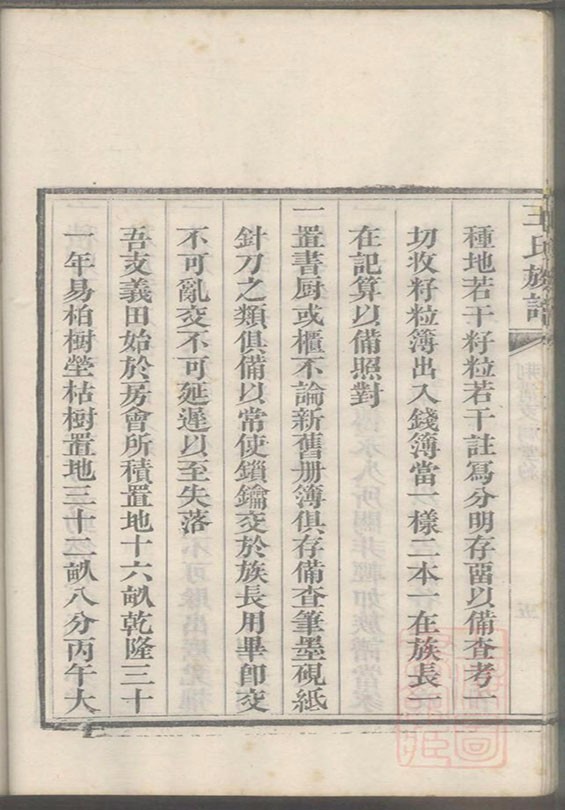 王氏族譜
種地若干籽粒若干註寫分明存畱以備查考
切收籽粒簿出入錢簿當一樣二本一在族長一
在記算以備照對
一置書厨或櫃不論新舊册簿俱存備查筆墨硯紙
針刀之類俱備以常使鎖鑰交於族長用畢即交
不可亂交不可延遲以至失落
吾支義田始於房會所積置地十六畝乾隆三十
一年易柏樹塋枯樹置地三十二畝八分丙午大